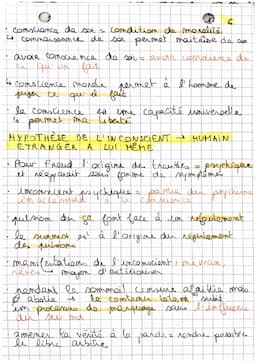 6
• conscience de soi = condition de moralité
↳ connaissance de soi permet maîtrise de soi
• avoir conscience de soi = avoir conscience de
ce qu'on fait
↳ conscience morale permet à l'homme de
juger ce qu'il fait
• la conscience est une capacité universelle
↳ permet ma liberté
HYPOTHÈSE DE L'INCONSCIENT → HUMAIN
ETRANGER A LUI MÊME
• Pour Freud l'origine de troubles = psychique
et réapparait sous forme de symptôme
• inconscient psychique = partie du psychisme
inaccessible à la conscience
• pulsion du ça font face à un refoulement
• le surmoi est à l'origine du refoulement
des pulsions
• manifestation de l'inconscient :
moyen d'extérioriser
• pendant le sommeil censure affaiblie mais
pas abolie → le contenu latent subit
un processus de masquage sous l'influence
du
• amener la vérité à la parole = rendre possible
le libre arbitre